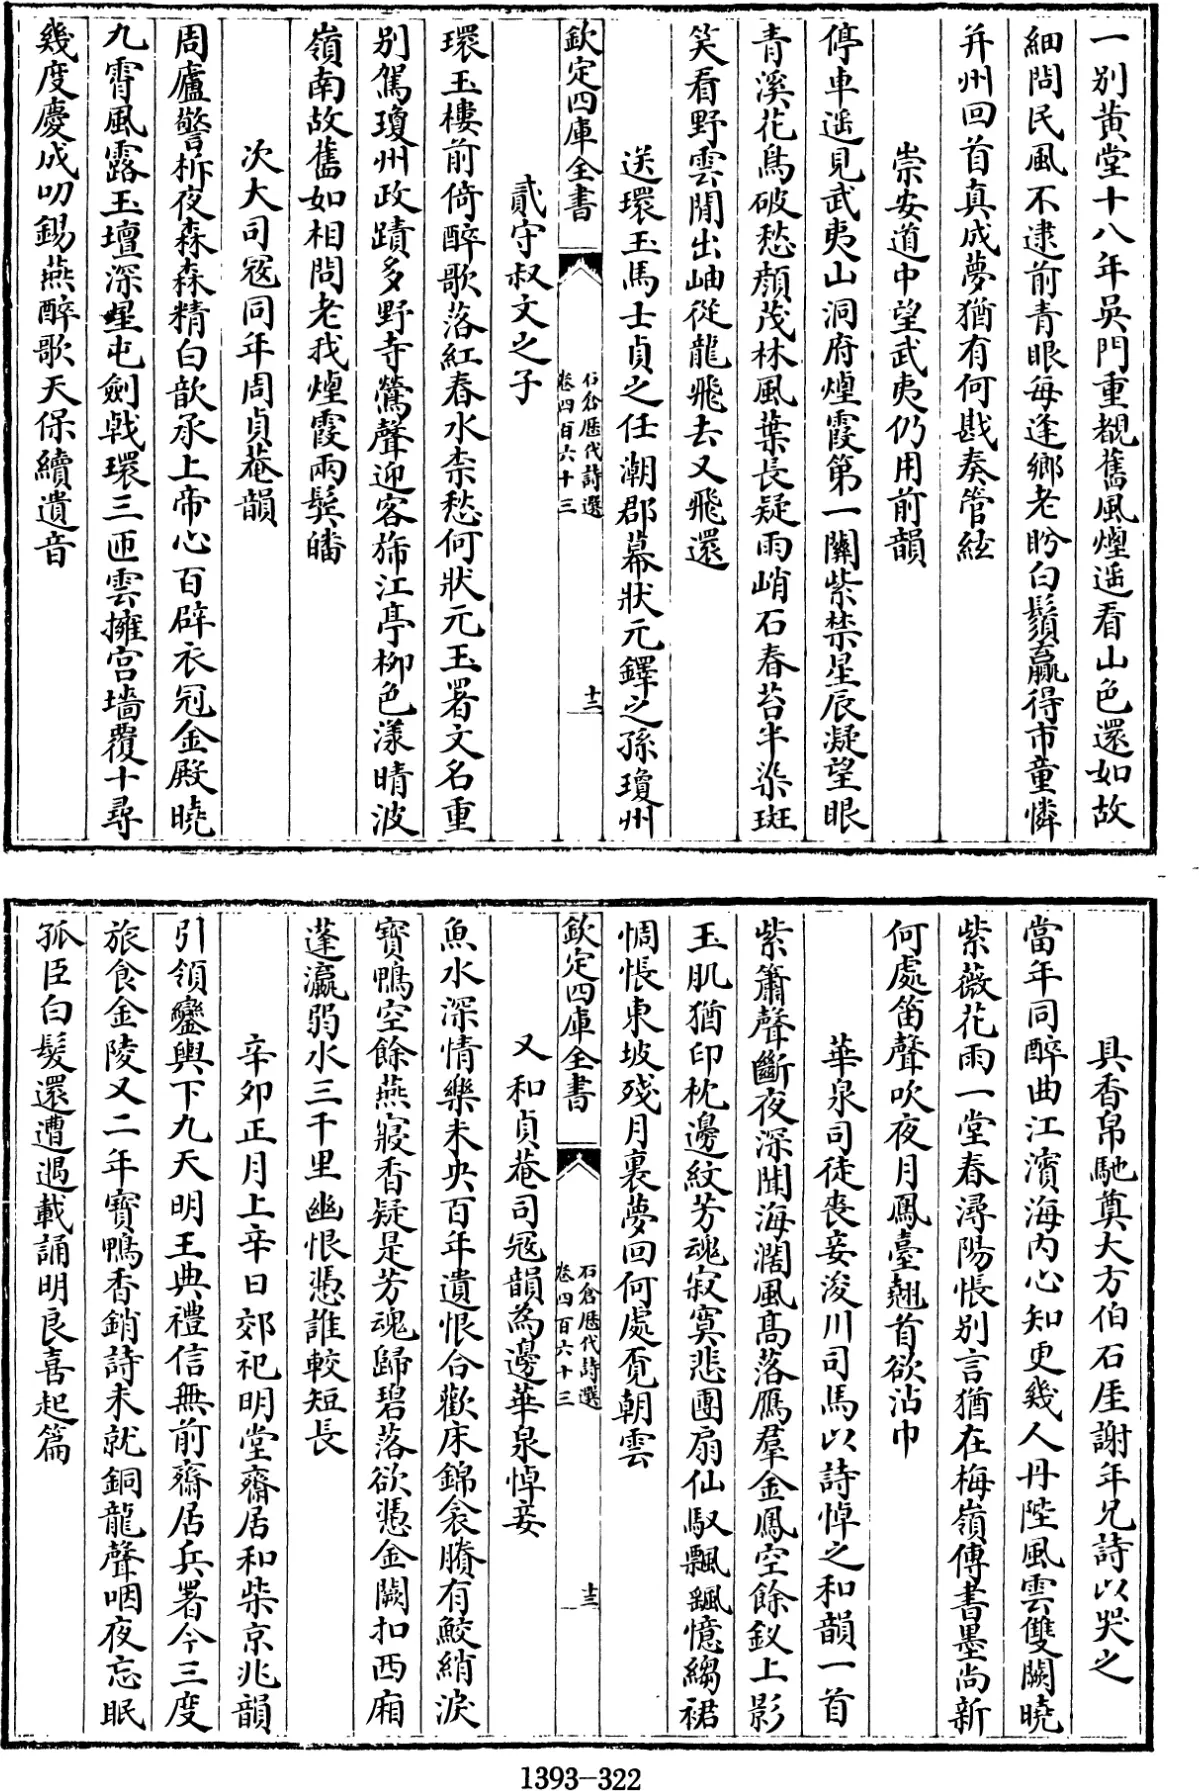 一别黄堂十八年吳門重覩舊風煙遥看山色還如故
細問民風不逮前青眼每逢鄉老盻白鬚贏得市童憐
并州回首真成夢猶有何戡奏管絃
崇安道中望武夷仍用前韻
停車遥見武夷山洞府煙霞第一關紫禁星辰凝望眼
青溪花鳥破愁顔茂林風葉長疑雨峭石春苔半染斑
笑看野雲閒出岫從龍飛去又飛還
送環玉馬士貞之任潮郡幕狀元鐸之孫瓊州
欽定四庫全書
石倉歷代詩選
卷四百六十三
十二
貳守叔文之子
環玉樓前倚醉歌落紅春水柰愁何狀元玉署文名重
别駕瓊州政蹟多野寺鶯聲迎客斾江亭柳色漾晴波
嶺南故舊如相問老我煙霞兩鬓皤
次大司冦同年周貞菴韻
周廬警柝夜森森精白歆承上帝心百辟衣冠金殿曉
九霄風露玉壇深星屯劍㦸環三匝雲擁宫墻覆十尋
幾度慶成叨錫燕醉歌天保續遺音
具香帛馳奠大方伯石厓謝年兄詩以哭之
當年同醉曲江濱海内心知更幾人丹陛風雲雙闕曉
紫薇花雨一堂春潯陽悵别言猶在梅嶺傳書墨尚新
何處笛聲吹夜月鳳臺翹首欲沾巾
華泉司徒喪妾浚川司馬以詩悼之和韻一首
紫簫聲斷夜深聞海濶風髙落鴈羣金鳳空餘釵上影
玉肌猶印枕邊紋芳魂寂寞悲團扇仙馭飄飄憶縐裙
惆悵東坡殘月裏夢回何處覓朝雲
欽定四庫全書
石倉歷代詩選
卷四百六十三
十三
又和貞菴司冦韻為邊華泉悼妾
魚水深情樂未央百年遺恨合歡床錦衾賸有鮫綃淚
寳鴨空餘燕寢香疑是芳魂歸碧落欲憑金闕扣西廂
蓬瀛弱水三千里幽恨憑誰較短長
辛卯正月上辛日郊祀明堂齋居和柴京兆韻
引領鑾輿下九天明王典禮信無前齋居兵署今三度
旅食金陵又二年寳鴨香銷詩未就銅龍聲咽夜忘眠
孤臣白髮還遭遇載誦明良喜起篇
1393—322